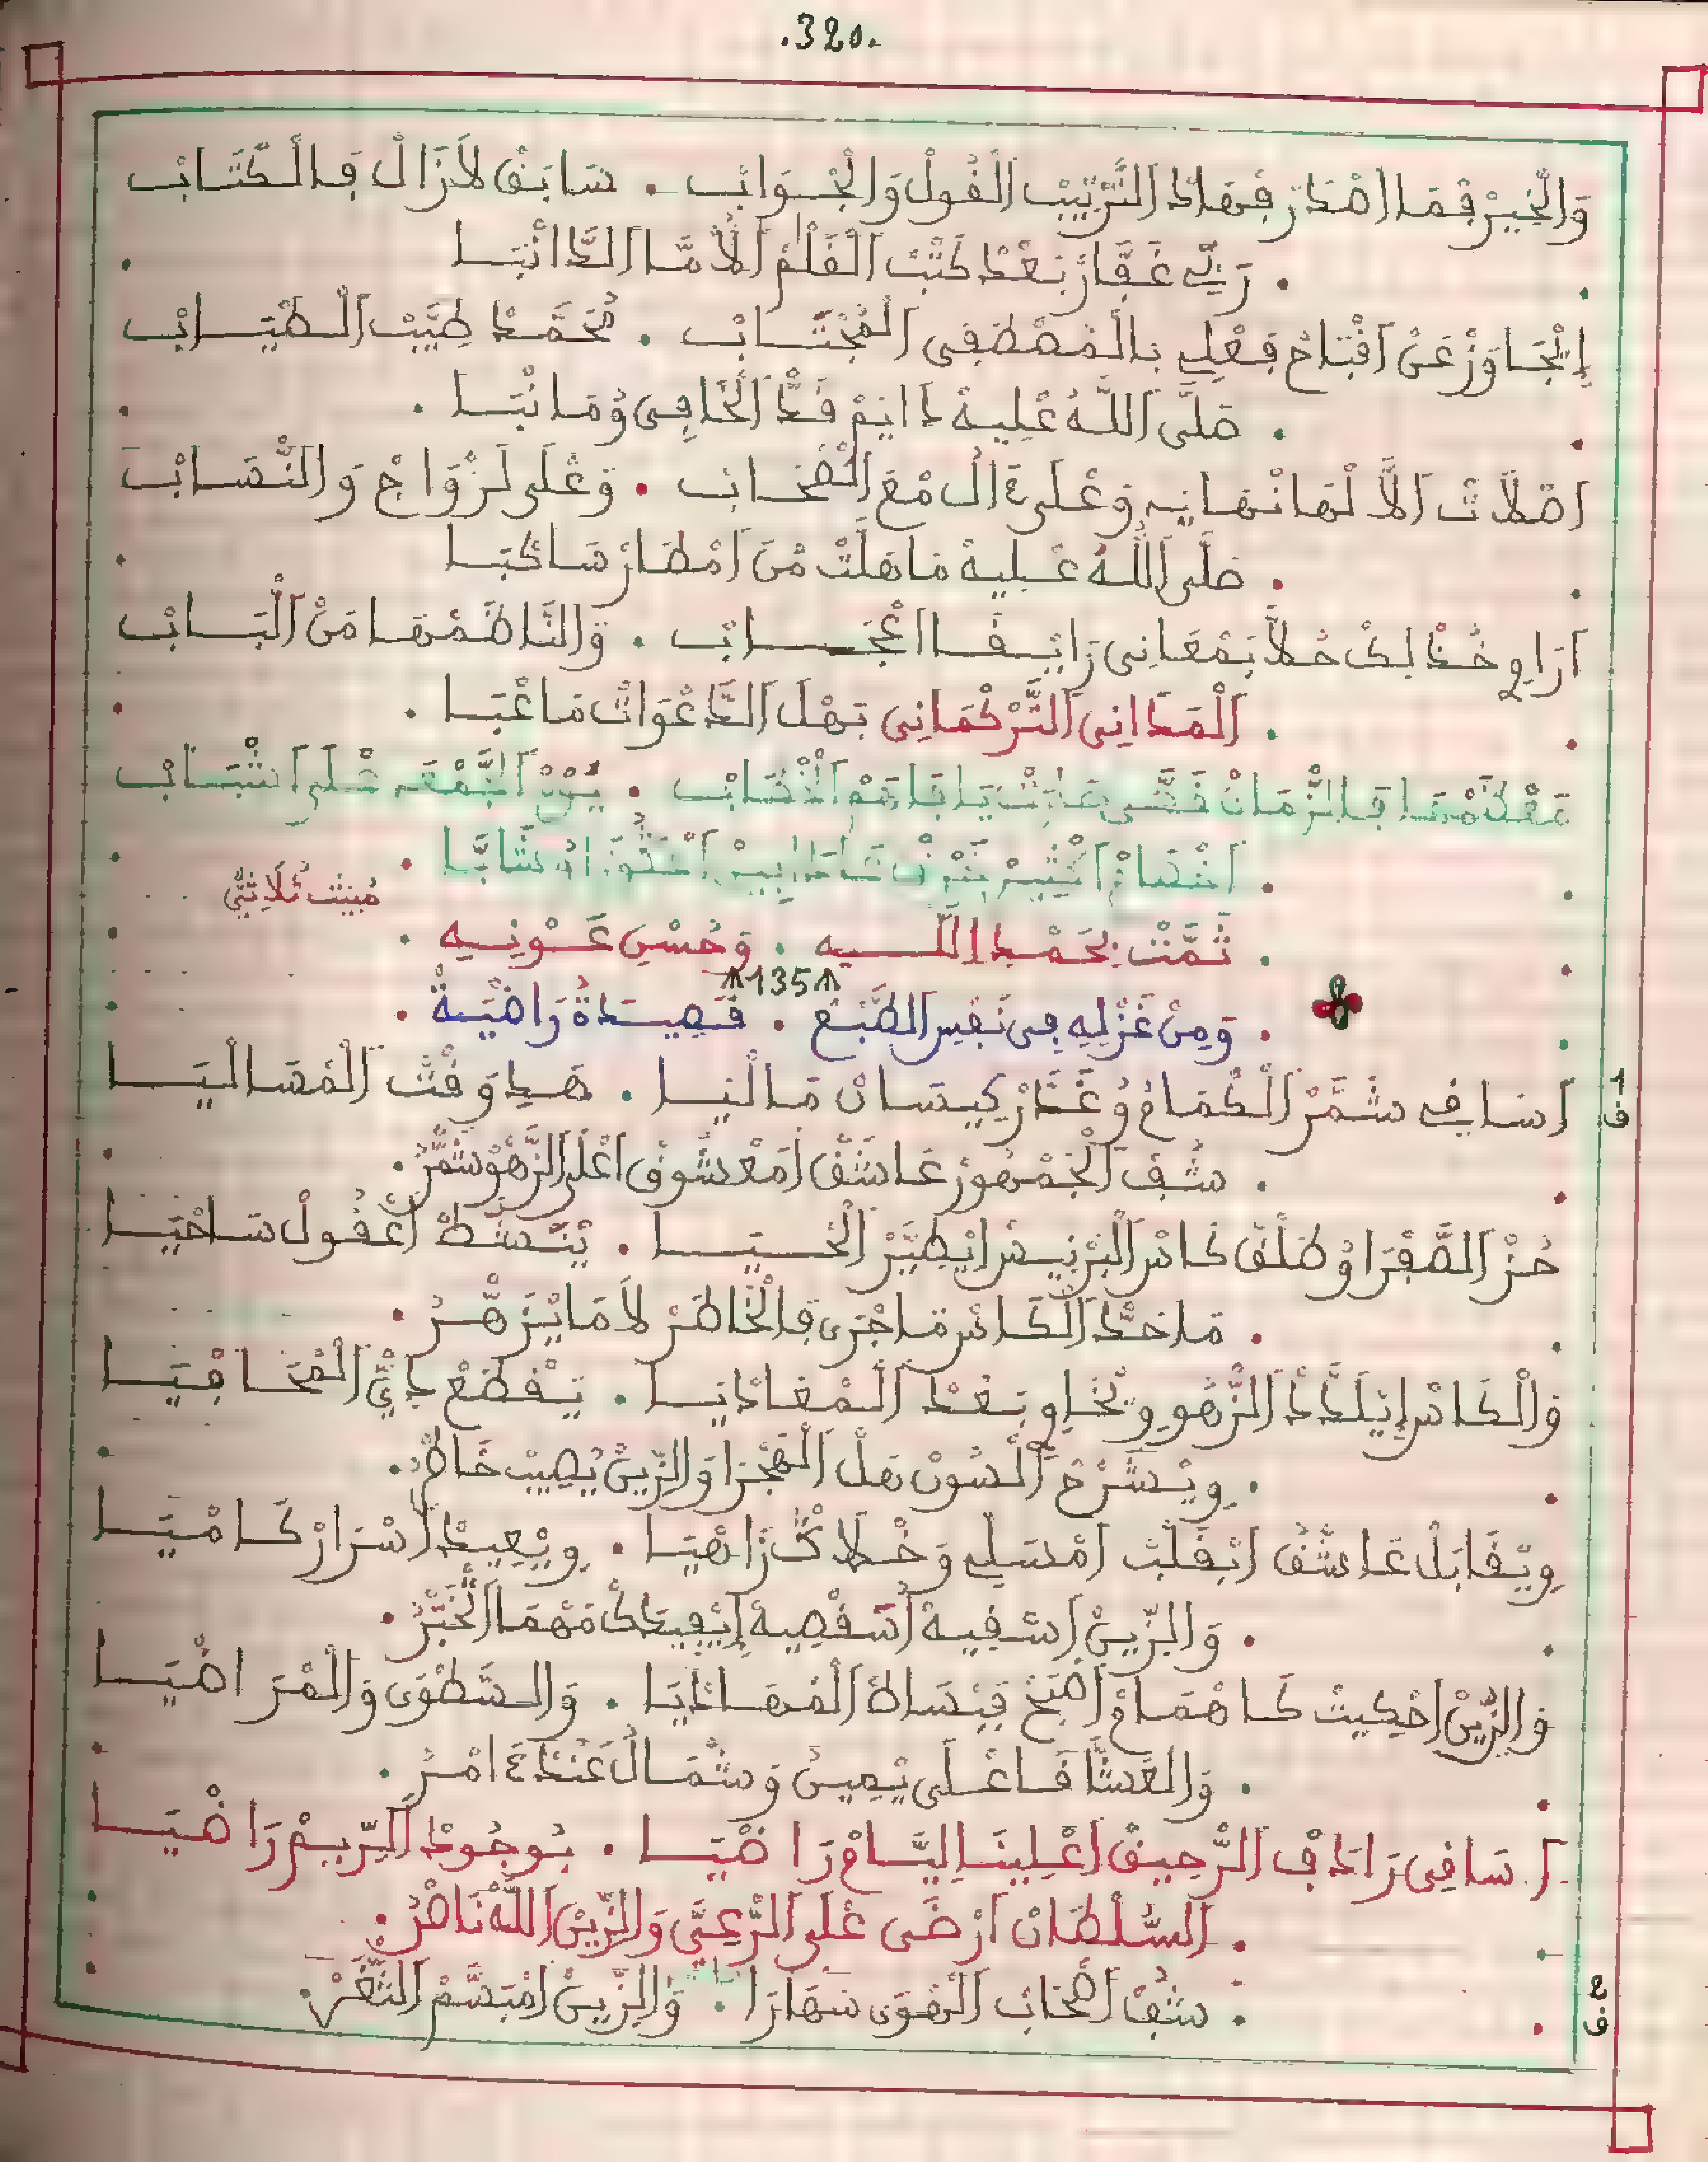 .320.
وَالْخِيرْ فِمَا اصْدَرْ فِهَادْ التَّرْتِيبْ الْقُولْ وَالْجْوَابْ . سَابَقْ لَازَالْ فَالْكْتَابْ
. رَبِّي غَفَّارْ بَعْدْ كَتْبْ الْقَلَمْ الْأُمَّا الدَّانْبَا
إِتْجَاوَزْ عَنْ اقْبَاحْ فِعْلِي بَالْمُصْطَفَى الْمُجْتَابْ . مُحَمَّدْ طِيِّبْ الْطْيَابْ
. صَلَّى اللَّهُ عْلِيهْ دَايَمْ قَدّْ الْخَافِي وُمَا نْبَا .
اصْلَاتْ الَّا لْهَا نْهَايَه وَعْلَى ءَالُ مْعَ الصْحَابْ . وَعْلَى لَزْوَاجْ وَالنّْسَابْ
. صَلَّى اللَّهُ عْلِيهْ مَا هَلَّتْ مْنَ امْطَارْ سَاكْبَا
ارَاوِي خُذْ لِكْ حُلَّا بَمْعَانِي رَايْقَا اعْجَابْ . وَالنَّاظَمْهَا مَنْ الْبَابْ
. الْمَدَانِي التُّرْكْمَانِي بَهْلَ الدَّعْوَاتْ مَاعْبَا .
يُومْ الْجَمْعَه
مُبيت ثُلَاثِيّ
. تَمَّتْ بِحَمْدِ اللَّـهِ . وَحُسْنِ عَوْنِـهِ .
135
. وَمِنْ غَزْلِهِ فِي نَفْسِ الطَّبْعِ . قَصِيدَةُ رَاضْيَةْ .
ق 1
اسَاقِي شَمَّرْ الْكْمَامْ وُغَدَّرْ كِيسَانْ مَالْيَا . هَدِ وَقْتْ الْمْسَالْيَا
. شُفْ الْجَمْهُورْ عَاشَقْ امَعْشُوقْ اعْلَى الزّْهُو شَمَّرُ .
حُزْ الصَّفْرَا وُطَلْقْ كَاسْ الْبَرْنِيسْ ايْطَيَّرْ الْحْيَا . يَنَّشْطْ اعْقُولْ سَاحْيَا
. مَاحَدّْ الْكَاسْ مَاجْرَى فَالْخَاطَرْ لَامَا يْزَهَّرُ .
وَالْكَاسْ إِيْلَدَّدْ الزّْهُو وِيْخَاوِي بَعْدْ الْمْعَادْيَا . يَقْطَعْ دِيّْ الْمْحَافْيَا
. وِيْسَرَّحْ الْسُونْ هَلْ الْهَجْرَا وَالزِّينْ يْصِيبْ خَاطْرُ .
وِيْقَابَلْ عَاشَقْ ابْقَلْبْ امْسَلِّي وَخْلَاكْ زَاهْيَا . وِيْعِيدْ اسْرَارْ كَامْيَا
. وَالزِّينْ اسْقِيهْ اسَقْصِيهْ إِيْفِيدَكْ مَهْمَا اتْخَبّْرُ .
وَالزِّينْ احْكِيتْ كَاهْمَامْ اصْبَحْ فَبْسَاطْ الْمْهَادْيَا . وَالسَّطْوَى وَالْمْرَاضْيَا
. وَالْعَشَّاقَا عْلَى يْمِينُ وَشْمَالُ عَنْدْ ءَامْرُ .
ا. سَاقِي رَادَفْ الرّْحِيقْ اعْلِينَا لِيَّامْ رَاضْيَا . بُوجُودْ الرِّيمْ رَاضْيَا
. السُّلْطَانْ ارْضَى عْلَى الرّْعِيَّى وَالزِّينْ اللَّهْ نَاصْرُ .
ق 2
. شُفْ اصْحَابْ الْهْوَى سْهَارَا . وَالزِّينْ امْبَسَّمْ التّْغَرْ .